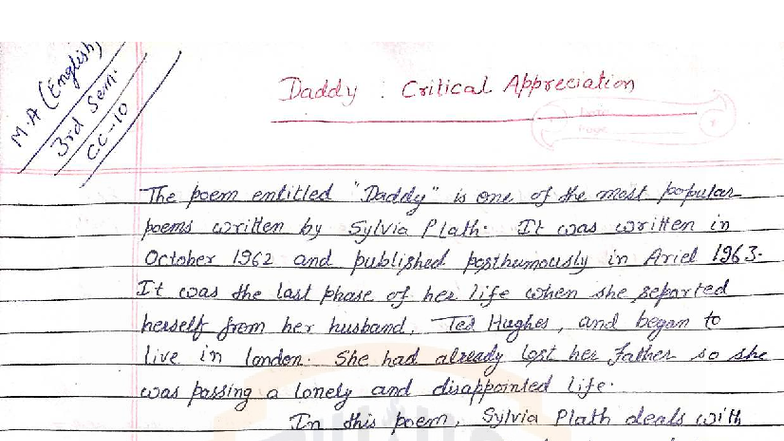 M.A (English)
3rd Sem.
CC-10
Daddy : Critical Appreciation
Date
Page
The poem entitled "Daddy" is one of the most popular
poems written by Sylvia Plath. It was written in
October 1962 and published posthumously in Ariel 1963.
It was the last phase of her life when she separted
herself from her husband, Ted Hughes, and began to
live in london. She had already lost her father so she
was passing a lonely and disappointed life.
In this poem, Sylvia Plath deals with